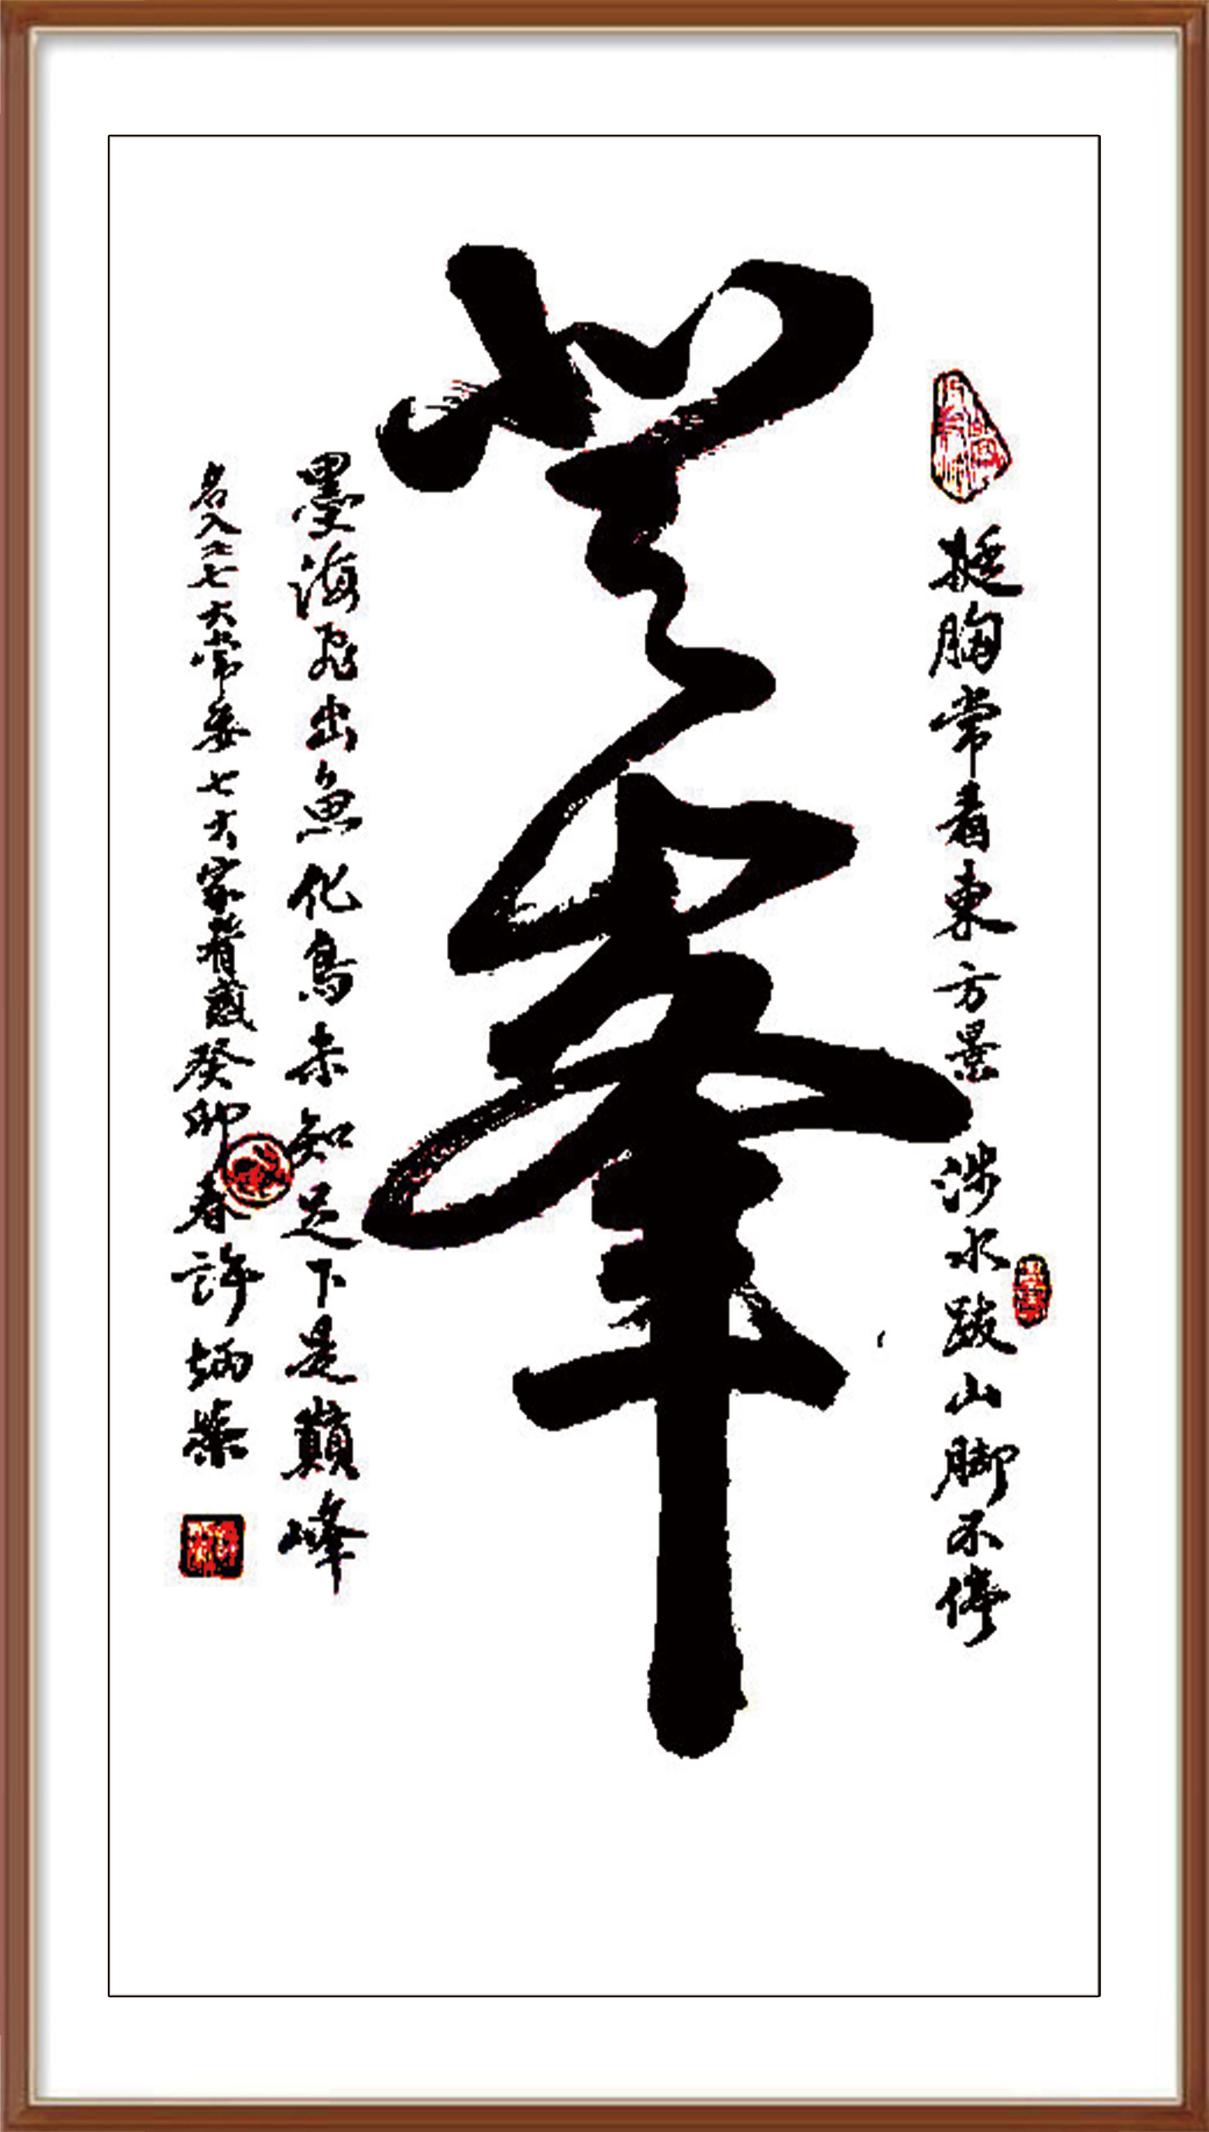 挺胸常看東方景 涉水跋山脚不停
登峯
墨海飛出魚化鳥未知足下是巔峰
名入二七大常委七大家有感癸卯春許炳榮